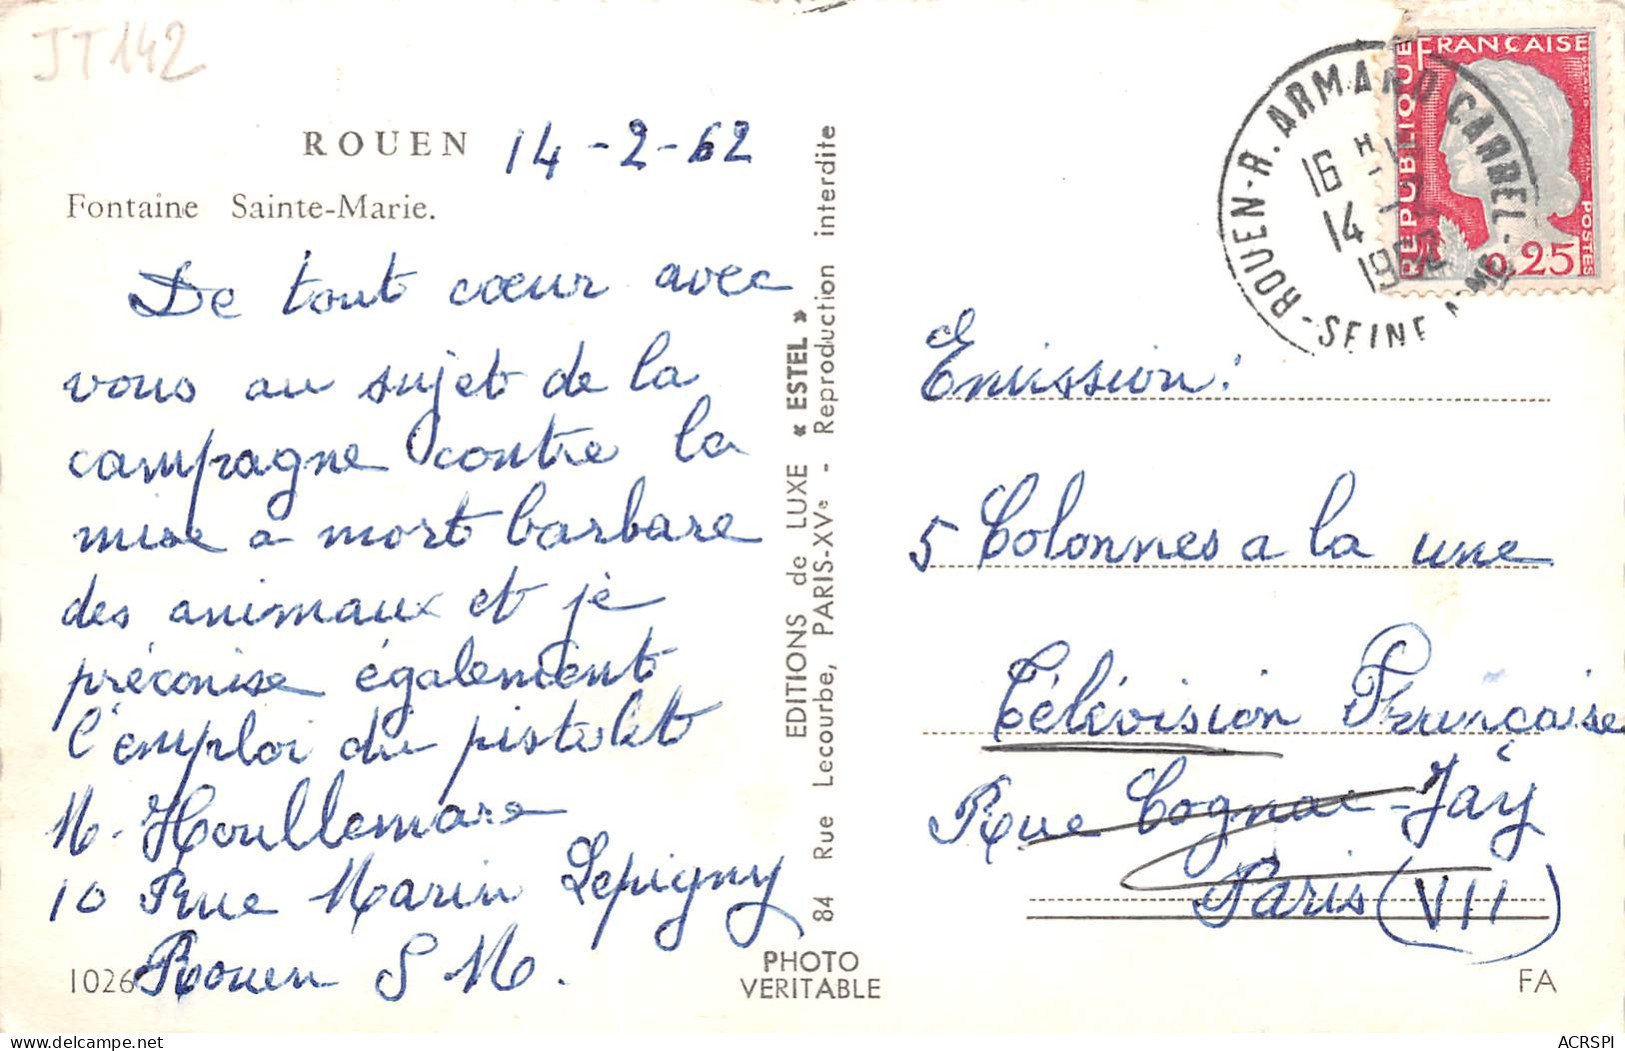 JT142
ROUEN 14-2-62
Fontaine Sainte-Marie.
De tout cœur avec
vous au sujet de la
campagne contre la
mise a mort barbare
des animaux et je
préconise également
l'emploi du pistolet
M. Houllemare
10 Rue Marin Lepigny
Rouen S M.
1026
EDITIONS de LUXE « ESTEL »
84 Rue Lecourbe, PARIS-XVe - Reproduction interdite
PHOTO
VERITABLE
RÉPUBLIQUE FRANÇAISE
POSTES
0,25
ROUEN-R. ARMAND CARREL-
SEINE
16 H
14
1962
Emission:
5 Colonnes a la une
Télévision Française
Rue Cognac-Jay
Paris (VII)
FA
ACRSPI